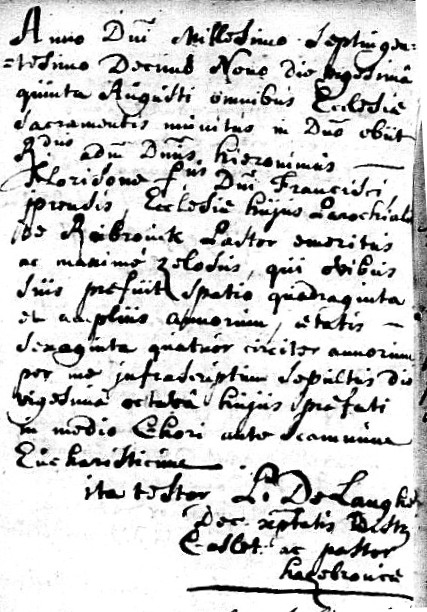 Anno Dni Millesimo Septingen=
=tesimo Decimo Nono die vigesima
quinta Augusti omnibus Ecclesiæ
sacramentis munitus in Dno obiit
Rdus adm Dnus hieronimus
Florisone fius Dni Francisci
Ecclesiæ hujus Parochialis
de Rubrouck Pastor emeritus
ac maximè zelosus, qui ovibus
suis præfuit spatio quadraginta
et amplius annorum, ætatis
sexaginta quatuor circiter annorum
per me infrascriptum sepultus die
vigesima octava hujus præfati
in medio Chori ante scamnum
Eucharisticum
ita testor De Langhe
Dec
Casset ac pastor